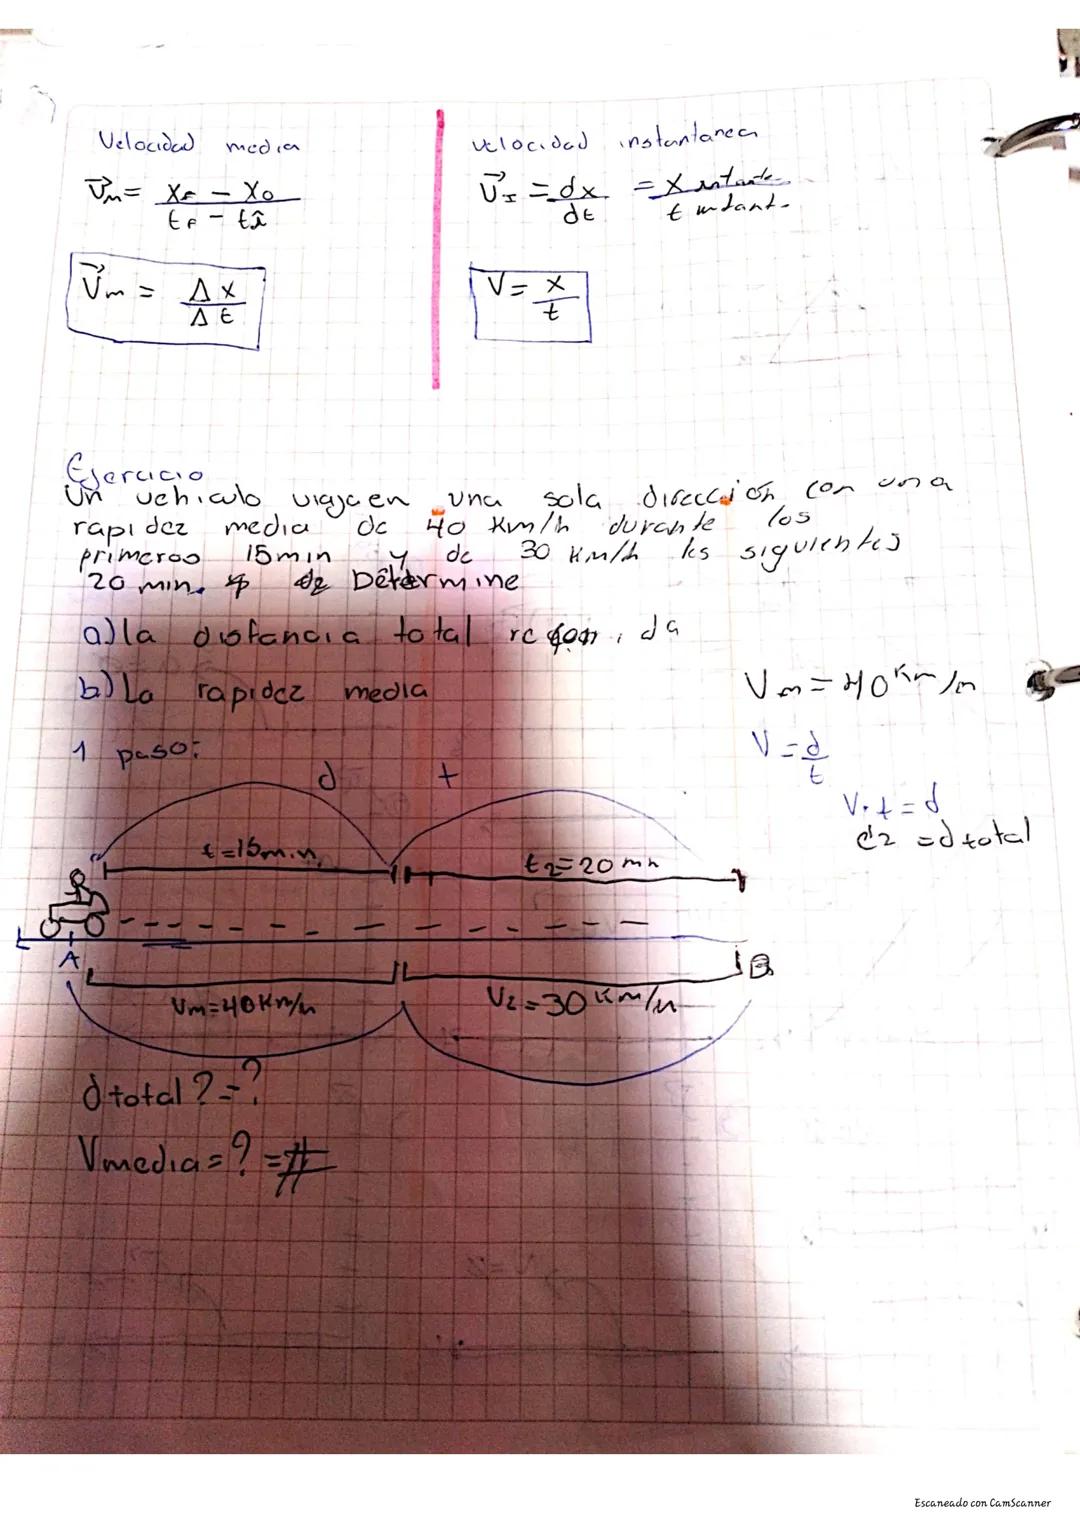 Velocidad media
V⃗m = xF - xo / tF - tî
V⃗m = Δx / Δt
Velocidad instantanea
V⃗I = dx / dt = x intante / t intant
V = x / t
Ejercicio
Un vehiculo viaja en una sola dirección con una
rapidez media de 40 Km/h durante los
primeros 15 min y de 30 Km/h los siguientes
20 min. Determine
a) la distancia total recorrida
b) La rapidez media
Vm = 40 Km/h
V = d / t
V. t = d
d2 = d total
1 paso:
d t
t = 15 min.
t2 = 20 mn
A B
Vm = 40 Km/h
V2 = 30 Km/h
d total ? = ?
Vmedia = ? = #
Escaneado con CamScanner